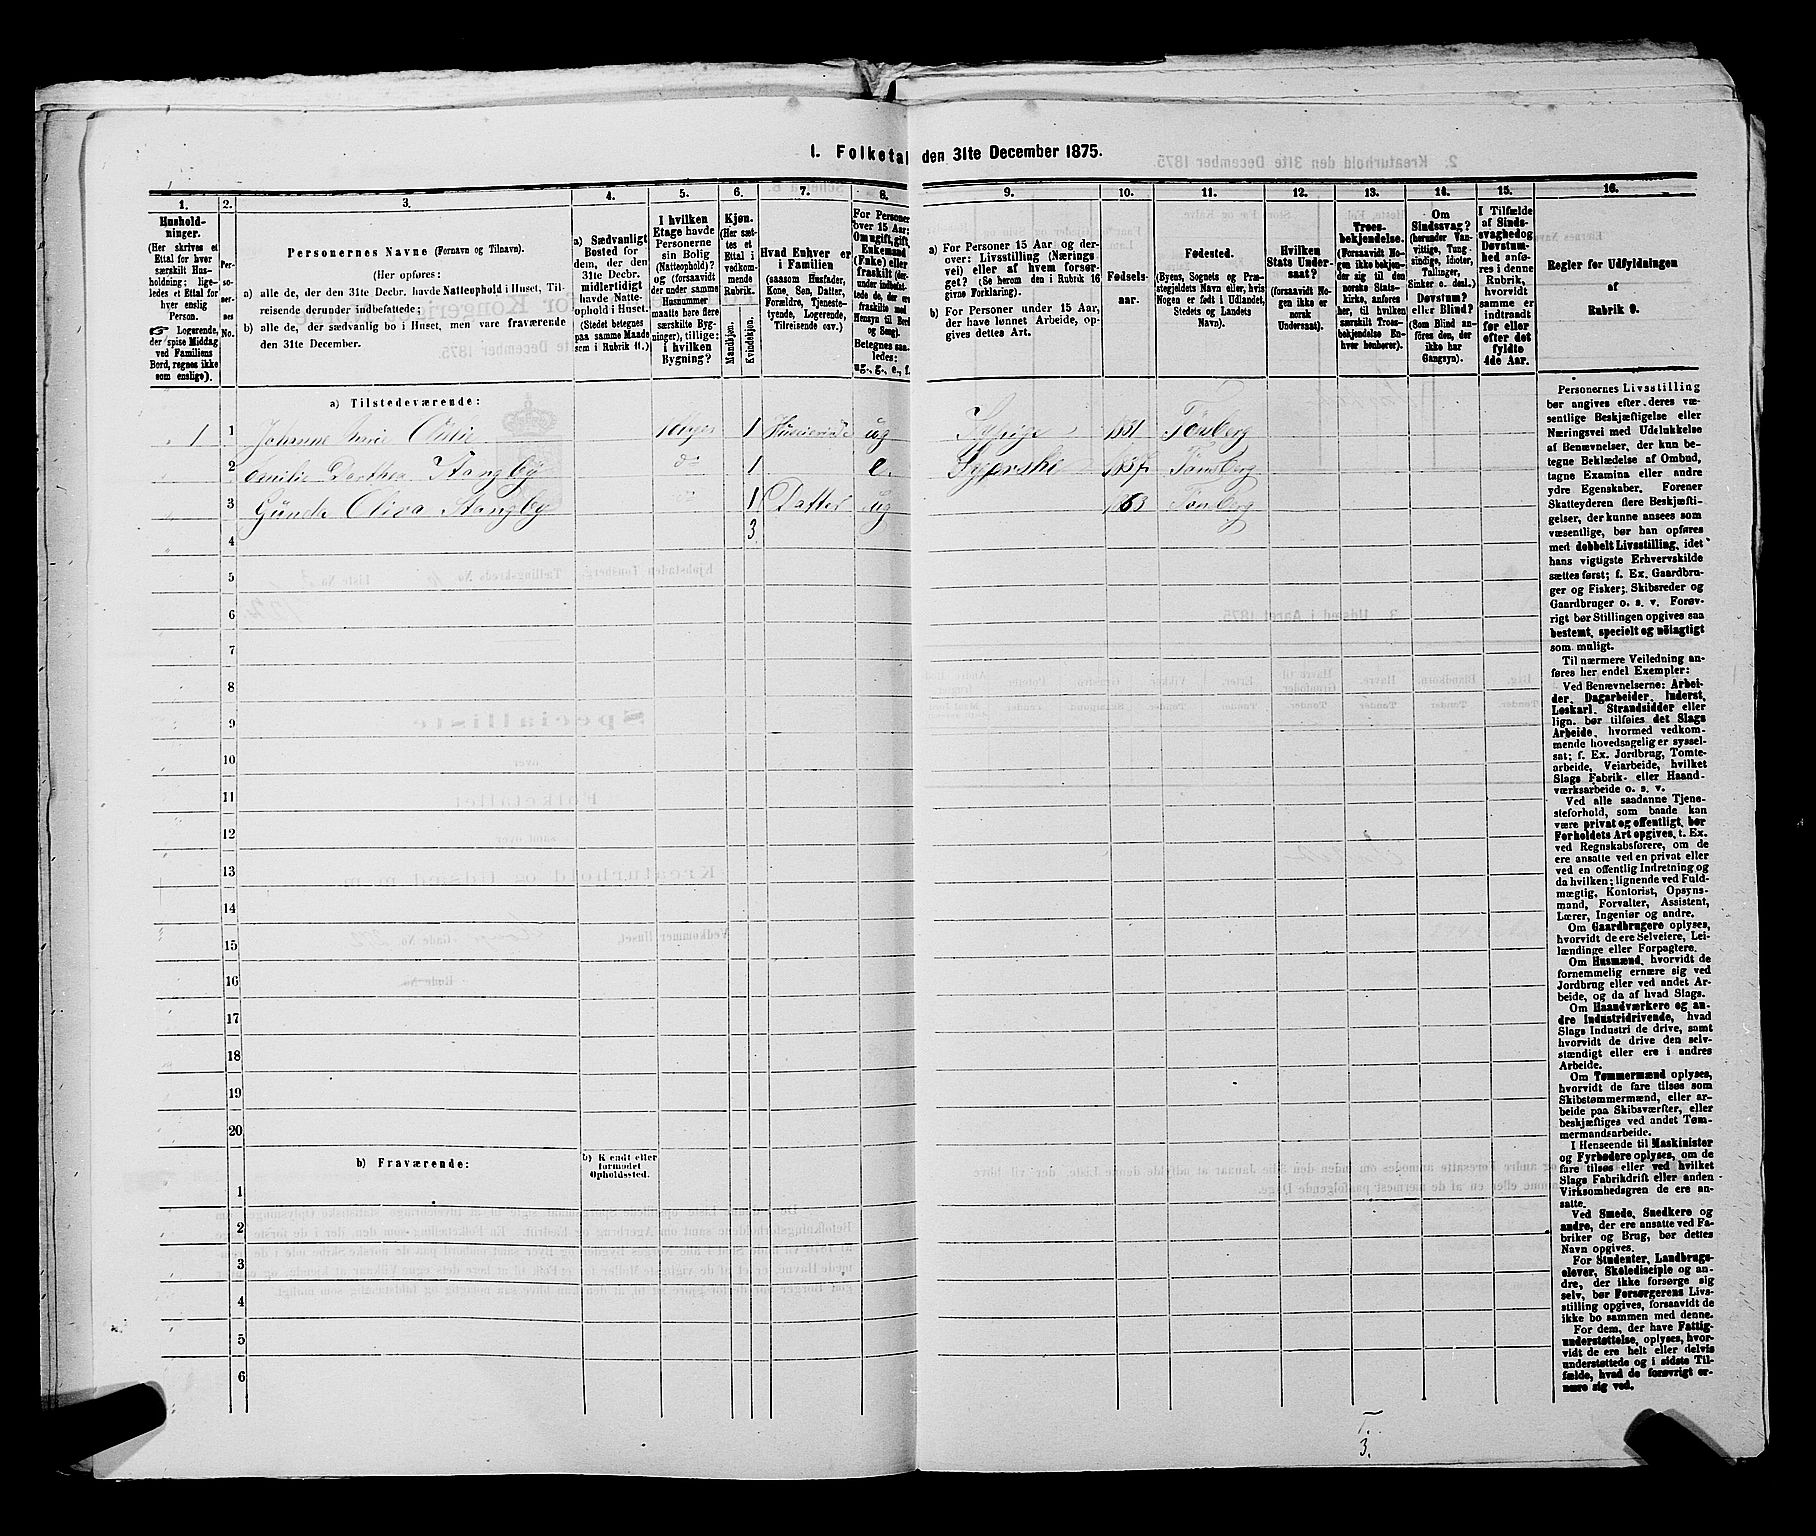 1. Folketal den 31te December 1875.
1. 2. 3. 4. 5. 6. 7. 8. 9. 10. 11. 12. 13. 14. 15. 16.
Hushold-
ninger.
(Her skrives et
Ettal for hver
særskilt Hus-
holdning; lige-
ledes et Ettal for
hver enslig
Person.
☞ Logerende,
der spise Middag
ved Familiens
Bord, regnes ikke
som enslige).
Per-
so-
ner-
nes
No.
Personernes Navne (Fornavn og Tilnavn).
(Her opføres:
a) alle de, der den 31te Decbr. havde Natteophold i Huset, Til-
reisende derunder indbefattede;
b) alle de, der sædvanlig bo i Huset, men vare fraværende
den 31te December.
a) Sædvanligt
Bosted for
dem, der den
31te Decbr.
midlertidigt
havde Natte-
ophold i Huset.
(Stedet betegnes
paa samme Maade
som i Rubrik 11.)
I hvilken
Etage havde
Personerne
sin Bolig
(Natteophold)?
og (forsaavidt
der under samme
Husnummer
maatte høre flere
særskilte Byg-
ninger), tillige:
i hvilken
Bygning?
Kjøn.
(Her sæt-
tes et
Ettal i
vedkom-
mende
Rubrik.
Mandkjøn.
Kvindekjøn.
Hvad Enhver er
i Familien
(saasom Husfader,
Kone, Søn, Datter,
Forældre, Tjeneste-
tyende, Logerende,
Tilreisende osv.)
For Personer
over 15 Aar:
Om ugift, gift,
Enkemand
(Enke) eller
fraskilt (der-
under indbefat-
tede de, der ere
fraskilte med
Hensyn til Bord
og Seng).
Betegnes saa-
ledes:
ug., g., e., f.
a) For Personer 15 Aar og der-
over: Livsstilling (Nærings-
vei) eller af hvem forsør-
get? (Se herom den i Rubrik 16
givne Forklaring).
b) For Personer under 15 Aar,
der have lønnet Arbeide, op-
gives dettes Art.
Fødsels-
aar.
Fødested.
(Byens, Sognets og Præ-
stegjeldets Navn eller, hvis
Nogen er født i Udlandet,
Stedets og Landets
Navn).
Hvilken
Stats Under-
saat?
(forsaavidt No-
gen ikke er
norsk
Undersaat).
Troes-
bekjendelse.
(Forsaavidt No-
gen ikke bekjen-
der sig til den
norske Stats-
kirke, anføres
her, til hvilken
særskilt Troes-
bekjendelse En-
hver henhører).
Om
Sindssvag?
(herunder Van-
vittige, Tung-
sindige, Idioter,
Tullinger,
Sinker o. desl.)
Døvstum?
eller Blind?
(Som Blind an-
føres den, der
ikke har
Gangsyn).
I Tilfælde
af Sinds-
svaghed og
Døvstum-
hed anfø-
res i denne
Rubrik,
hvorvidt
samme er
indtraadt
før eller
efter det
fyldte
4de Aar.
Regler for Udfyldningen
af
Rubrik 9.
a) Tilstedeværende:
1 1 Johanne 1 ug 1831 Tønsberg
2 Emilie Dorthea Stangeby do 1 e. 1837 Tønsberg
3 Gunda Oliva Stangeby do 1 Datter ug 1863 Tønsberg
4 3
5
6
7
8
9
10
11
12
13
14
15
16
17
18
19
20
b) Fraværende:
b) Kjendt eller
formodet
Opholdssted.
1
2
3
4
5
6
Personernes Livsstilling
bør angives efter deres væ-
sentlige Beskjæftigelse eller
Næringsvei med Udelukkelse
af Benævnelser, der kun be-
tegne Beklædelse af Ombud,
tagne Examina eller andre
ydre Egenskaber. Forener
Skatteyderen flere Beskjæfti-
gelser, der kunne ansees som
væsentlige, bør han opføres
med dobbelt Livsstilling, idet
hans vigtigste Erhvervskilde
sættes først; f. Ex. Gaardbru-
ger og Fisker; Skibsreder og
Gaardbruger o. s. v. Forøv-
rigt bør Stillingen opgives saa
bestemt, specielt og nöiagtigt
som muligt.
Til nærmere Veiledning an-
føres her endel Exempler:
Ved Benævnelserne: Arbei-
der, Dagarbeider, Inderst,
Løskarl, Strandsidder eller
lign. bør tilføies det Slags
Arbeide, hvormed vedkom-
mende hovedsagelig er syssel-
sat; f. Ex. Jordbrug, Tomte-
arbeide, Veiarbeide, hvilket
Slags Fabrik- eller Haand-
værksarbeide o. s. v.
Ved alle saadanne Tjene-
steforhold, som baade kan
være privat og offentligt, bør
Forholdets Art opgives, t. Ex.
ved Regnskabsførere, om de
ere ansatte ved en privat eller
ved en offentlig Indretning og
da hvilken; lignende ved Fuld-
mægtig, Kontorist, Opsyns-
mand, Forvalter, Assistent,
Lærer, Ingeniør og andre.
Om Gaardbrugere oplyses,
hvorvidt de ere Selveiere, Lei-
lændinge eller Forpagtere.
Om Husmænd, hvorvidt de
fornemmelig ernære sig ved
Jordbrug eller ved andet Ar-
beide, og da af hvad Slags.
Om Haandværkere og an-
dre Industridrivende, hvad
Slags Industri de drive, samt
hvorvidt de drive den selv-
stændigt eller ere i andres
Arbeide.
Om Tømmermænd oplyses,
hvorvidt de fare tilsøs som
Skibstømmermænd, eller ar-
beide paa Skibsværfter, eller
beskjæftiges ved andet Tøm-
mermandsarbeide.
I Henseende til Maskinister
og Fyrbødere oplyses, om de
fare tilsøs eller ved hvilket
Slags Fabrikdrift eller anden
Virksomhedsgren de ere an-
satte.
Ved Smede, Snedkere og
andre, der ere ansatte ved Fa-
briker og Brug, bør dettes
Navn opgives.
For Studenter, Landbrugs-
elever, Skoledisciple og an-
dre, der ikke forsørge sig
selv, bør Forsørgerens Livs-
stilling opgives, forsaavidt de
ikke bo sammen med denne.
For dem, der have Fattig-
understøttelse, oplyses, hvor-
vidt de ere helt eller delvis
understøttede og i sidste Til-
fælde, hvad de forøvrigt er-
nære sig ved.
T.
3.